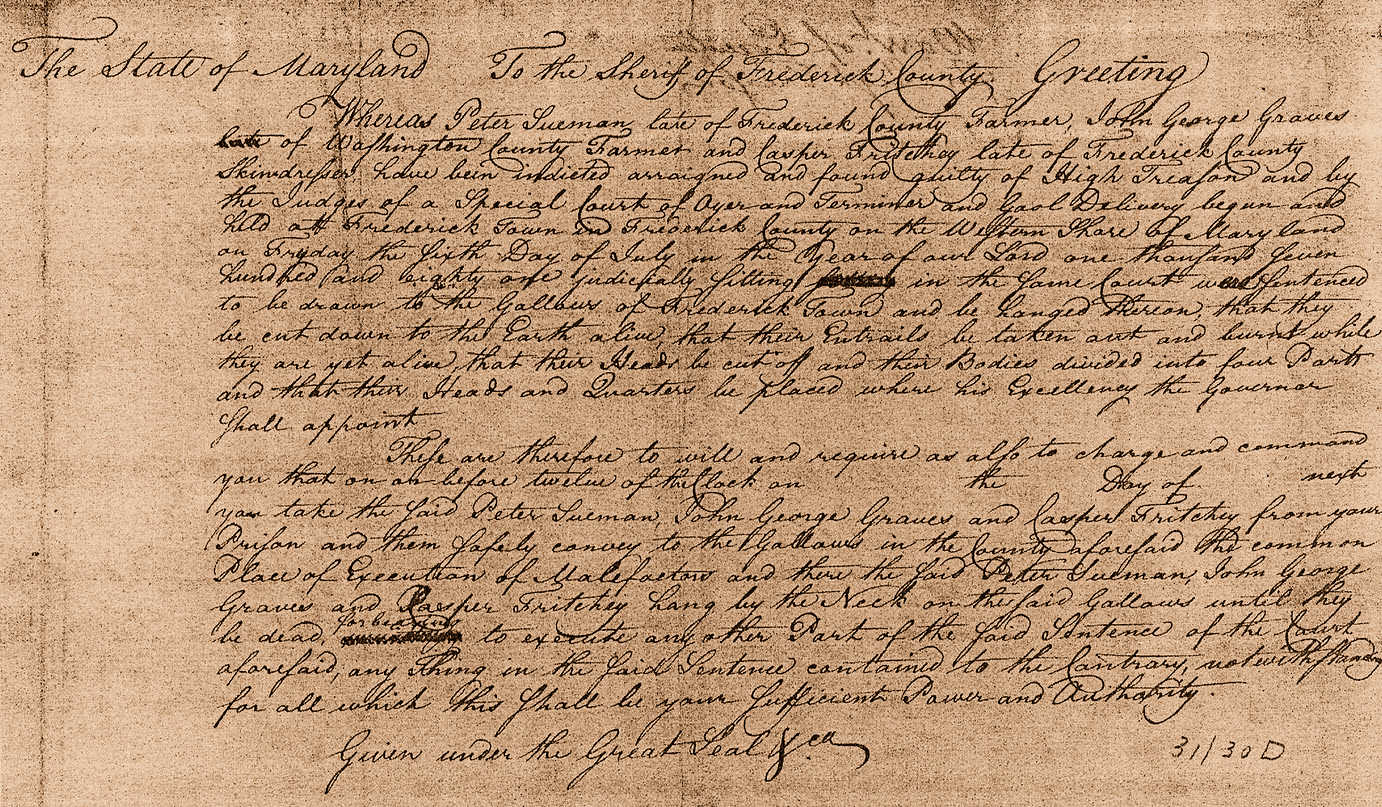 The State of Maryland To the Sheriff of Frederick County Greeting
Whereas Peter Sueman late of Frederick County Farmer, John George Graves
late of Washington County Farmer and Casper Fritchey late of Frederick County
Skindresser, have been indicted arraigned and found guilty of High Treason and by
the Judges of a Special Court of Oyer and Terminer and Gaol Delivery begun and
held att Frederick Town in Frederick County on the Western Shore of Maryland
on Fryday the sixth Day of July in the Year of our Lord one thousand seven
hundred and eighty one judicially sitting in the same Court were sentenced
to be drawn to the Gallows of Frederick Town and be hanged thereon, that they
be cut down to the Earth alive, that their Entrails be taken out and burnt while
they are yet alive, that their Heads be cut off and their Bodies divided into four Parts
and that their Heads and Quarters be placed where his Excellency the Governor
shall appoint
These are therefore to will and require as also to charge and command
you that on or before twelve of the Clock on the Day of next
you take the said Peter Sueman, John George Graves and Casper Fritchey from your
Prison and them safely convey to the Gallows in the County aforesaid the common
Place of Execution of Malefactors and there the said Peter Sueman, John George
Graves and Casper Fritchey hang by the Neck on the said Gallows until they
be dead, forbearing to execute any other Part of the said Sentence of the Court
aforesaid, any Thing in the said Sentence contained to the Contrary, notwithstanding
for all which this shall be your sufficient Power and Authority.
Given under the Great Seal &ca
31/30D